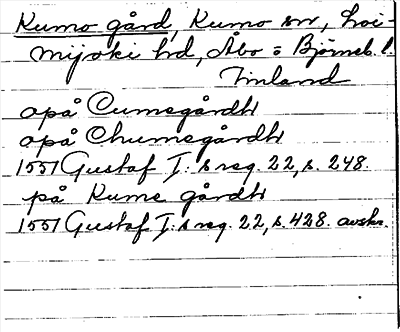 Kumo gård, Kumo sn, Loi-
mijoki hd, Åbo o Björneb. l.
Finland
opå Cumegårdh
opå Chumegårdh
1551 Gustaf I:s reg. 22, s. 248.
på Kume gårdh
1551 Gustaf I:s reg. 22, s. 428. avskr.